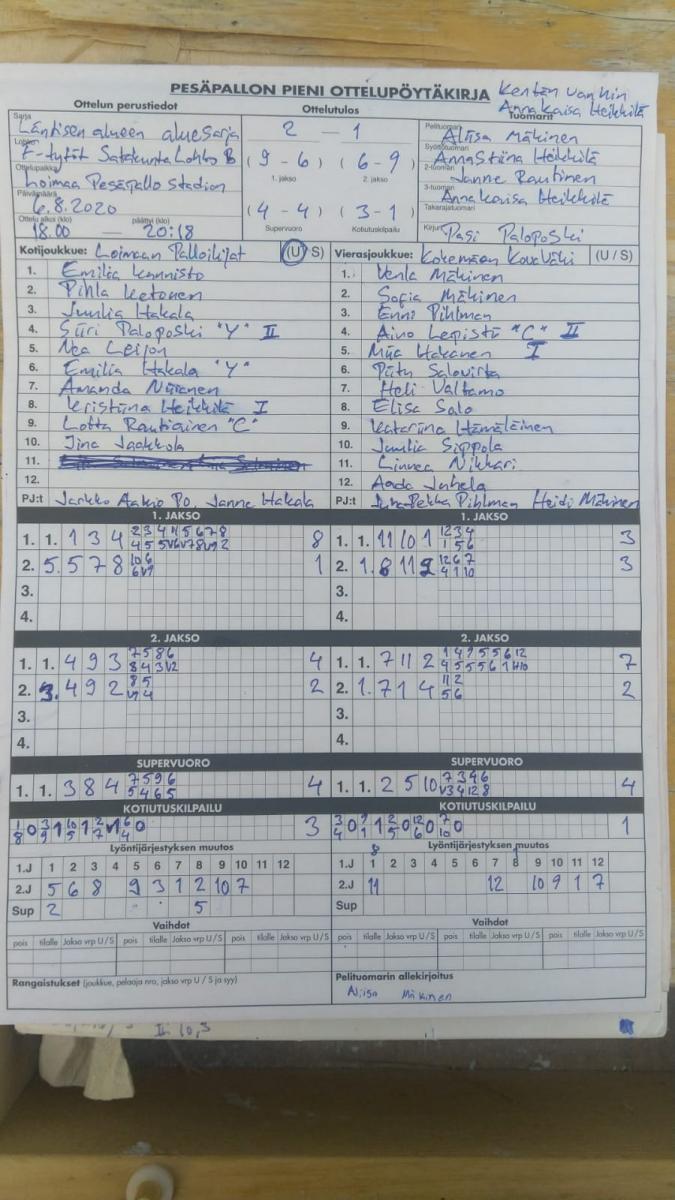 PESÄPALLON PIENI OTTELUPÖYTÄKIRJA
Kentän vanhin
Anna Kaisa Heikkilä
Ottelun perustiedot
Ottelutulos
Tuomarit
Sarja
Läntisen alueen aluesarja
Lohko
F-tytöt Satakunta Lohko B
Ottelupaikka
Loimaa Pesäpallo Stadion
Päivämäärä
6.8.2020
Ottelu alkoi (klo) päättyi (klo)
18.00 — 20:18
2 - 1
(9 - 6) (6 - 9)
1. jakso 2. jakso
(4 - 4) (3 - 1)
Supervuoro Kotiutuskilpailu
Pelituomari
Aliisa Mäkinen
Syöttötuomari
AnnaStiina Heikkilä
2-tuomari
Janne Rautinen
3-tuomari
Anna Kaisa Heikkilä
Takarajatuomari
Kirjuri
Pasi Paloposki
Kotijoukkue: Loimaan Palloilijat (U/S)
1. Emilia Kannisto
2. Pihla Ketonen
3. Juulia Hakala
4. Siiri Paloposki "Y" II
5. Nea Leijon
6. Emilia Hakala "Y"
7. Amanda Nüranen
8. Kristiina Heikkilä I
9. Lotta Rautiainen "C"
10. Iina Jaakkola
11.
12.
PJ:t Jarkko Aakio PO, Janne Hakala
Vierasjoukkue: Kokemäen KovaVäki (U / S)
1. Venla Mäkinen
2. Sofia Mäkinen
3. Enni Pihlman
4. Aino Lepistö "C" II
5. Miia Hakanen I
6. Piitu Salovirta
7. Heli Valtamo
8. Elisa Salo
9. Katariina Hämäläinen
10. Juulia Sippola
11. Linnea Nikkari
12. Aada Juhela
PJ:t Juha Pekka Pihlman Heidi Mäkinen
1. JAKSO
1. 1. 1 3 4 8
2. 5. 5 7 8 1
3.
4.
1. JAKSO
1. 1. 11 10 1 3
2. 1. 8 11 2 3
3.
4.
2. JAKSO
1. 1. 4 9 3 4
2. 3. 4 9 2 2
3.
4.
2. JAKSO
1. 1. 7 11 2 7
2. 1. 7 1 4 2
3.
4.
SUPERVUORO
1. 1. 3 8 4 4
SUPERVUORO
1. 1. 2 5 10 4
KOTIUTUSKILPAILU
3
KOTIUTUSKILPAILU
1
Lyöntijärjestyksen muutos
1.J 1 2 3 4 5 6 7 8 9 10 11 12
2.J 5 6 8 9 3 1 2 10 7
Sup 2 5
Lyöntijärjestyksen muutos
1.J 1 2 3 4 5 6 7 8 9 10 11 12
2.J 11 12 10 9 1 7
Sup
Vaihdot
pois tilalle Jakso vrp U / S pois tilalle Jakso vrp U / S pois tilalle Jakso vrp U / S
Vaihdot
pois tilalle Jakso vrp U / S pois tilalle Jakso vrp U / S pois tilalle Jakso vrp U / S
Rangaistukset (joukkue, pelaaja nro, jakso vrp U / S ja syy)
Pelituomarin allekirjoitus
Aliisa Mäkinen